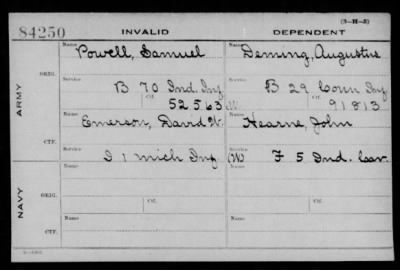 (3-H-3)
84250 INVALID DEPENDENT
Name Name
Powell, Samuel Deming, Augustus
ORIG. Service Service
B 70 Ind Inf B 29 Conn Inf
Ctf. Ctf.
52563 91813
ARMY
Name Name
Emerson, David W. Hearne, John
CTF. Service Service
I 1 Mich Inf (W) F 5 Ind. Cav.
Name Name
ORIG. Service Service
Ctf. Ctf.
NAVY
Name Name
CTF. Service Service